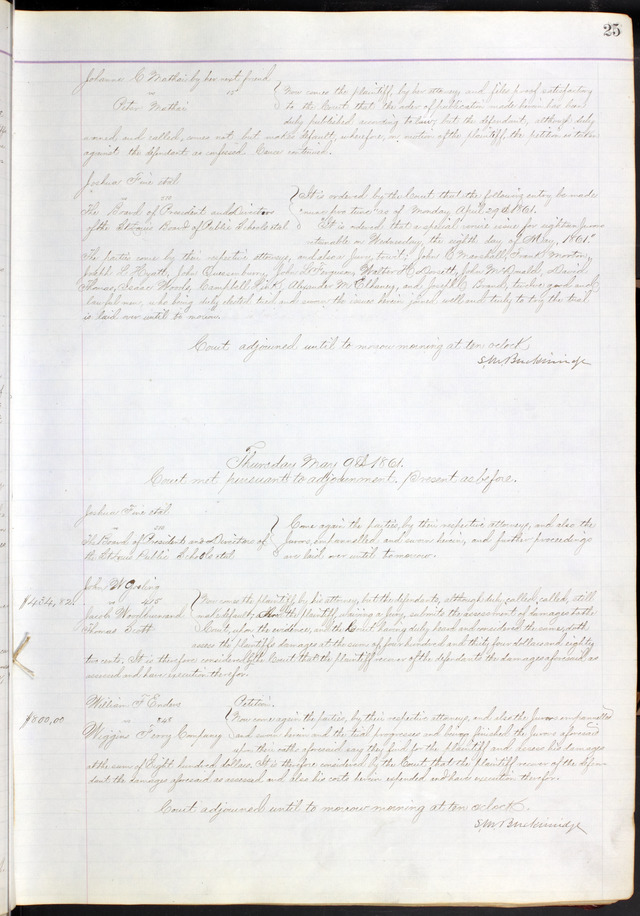 25
Johanna C Mathai by her next friend
vs 12
Peter Mathai
Now comes the plaintiff by her attorney and files proof satisfactory
to the Court that the order of publication made herein has been
duly published according to law, but the defendant, although duly
and called, comes not but makes default, wherefore, on motion of the plaintiff, the petition is taken
against the defendant as confessed. Cause continued.
Joshua Fine et al
vs
The Board of President and Directors
of the St Louis Board of Public Schools et al
It is ordered by the Court that the following entry be made
nunc pro tunc as of Monday April 29th 1861.
It is ordered that a special venire issue for eighteen Jurors
returnable on Wednesday, the eighth day of May, 1861.
The parties come by their respective attorneys, and also a Jury, towit: John C Marshall, Frank Morton,
Joseph L Hyatt, John Quesenbury, John L Ferguson, Walter H Dorsett, John McDonald, David
House, Isaac Woods, Campbell Park, Alexander M Elhaney, and Joseph C Brand, twelve good and
lawful men, who being duly elected tried and sworn the issues herein joined well and truly to try the trial
is laid over until to morrow.
Court adjourned until to morrow morning at ten oclock
S.M. Breckinridge
Thursday May 9th 1861.
Court met pursuant to adjournment. Present as before.
Joshua Fine et al.
vs
The Board of Presidents and Directors of
the St Louis Public Schools et al
Come again the parties, by their respective attorneys, and also the
Jurors, empannelled and sworn herein, and further proceedings
are laid over until tomorrow.
$434,82.
John W
vs 415
Jacob
Thomas Scott
Now comes the plaintiff by his attorney, but the defendants, although duly called, still
make default, the plaintiff waiving a Jury, submits the assessment of damages to the
Court, upon the evidence, and the Court having duly heard and considered the same, doth
assess the plaintiff's damages at the sum of four hundred and thirty four dollars and eighty
two cents. It is therefore considered by the Court that the plaintiff recover of the defendants the damages aforesaid, as
assessed and have execution therefor.
$800,00
William F Enders
vs 248
Wiggins Ferry Company
Petition.
Now come again the parties, by their respective attorneys, and also the Jurors empannelled
and sworn herein and the trial progresses and being finished, the Jurors aforesaid
upon their oaths aforesaid say they find for the plaintiff and assess his damages
at the sum of Eight hundred dollars. It is therefore considered by the Court that the plaintiff recover of the defen-
dant the damages aforesaid as assessed and also his costs herein expended and have execution therefor.
Court adjourned until to morrow morning at ten oclock.
S.M. Breckinridge